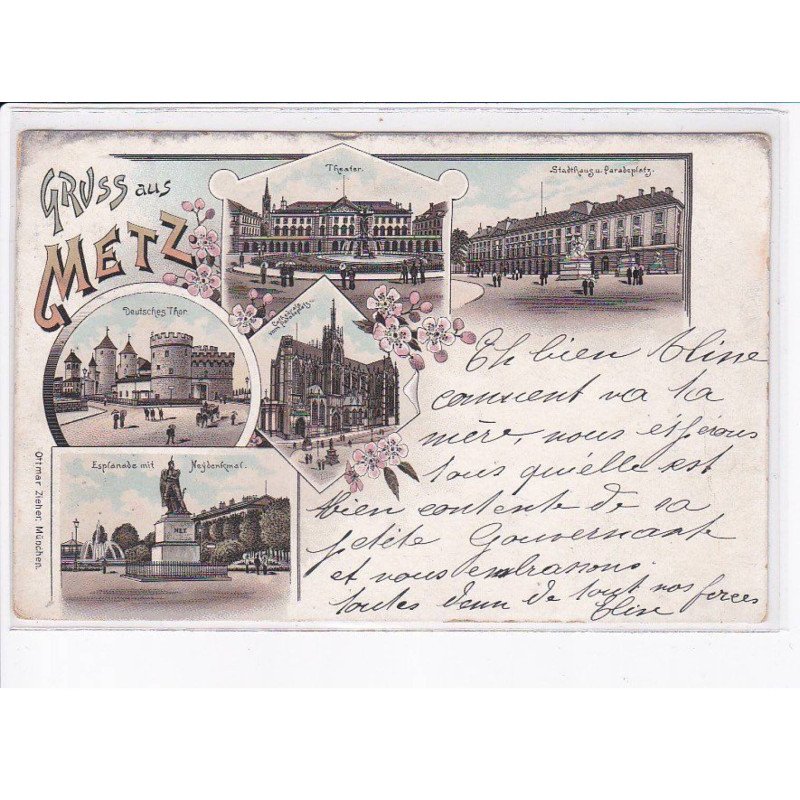 GRUSS aus
METZ
Theater.
Stadthaus u. Paradeplatz.
Deutsches Thor
Cathedrale
vom Paradeplatz.
Esplanade mit Neydenkmal.
NEY
Ottmar Zieher, München.
Eh bien Eline
comment va ta
mère, nous espérons
tous qu'elle est
bien contente de sa
petite Gouvernante
et nous embrassons
toutes deux de tout nos forces
Elise